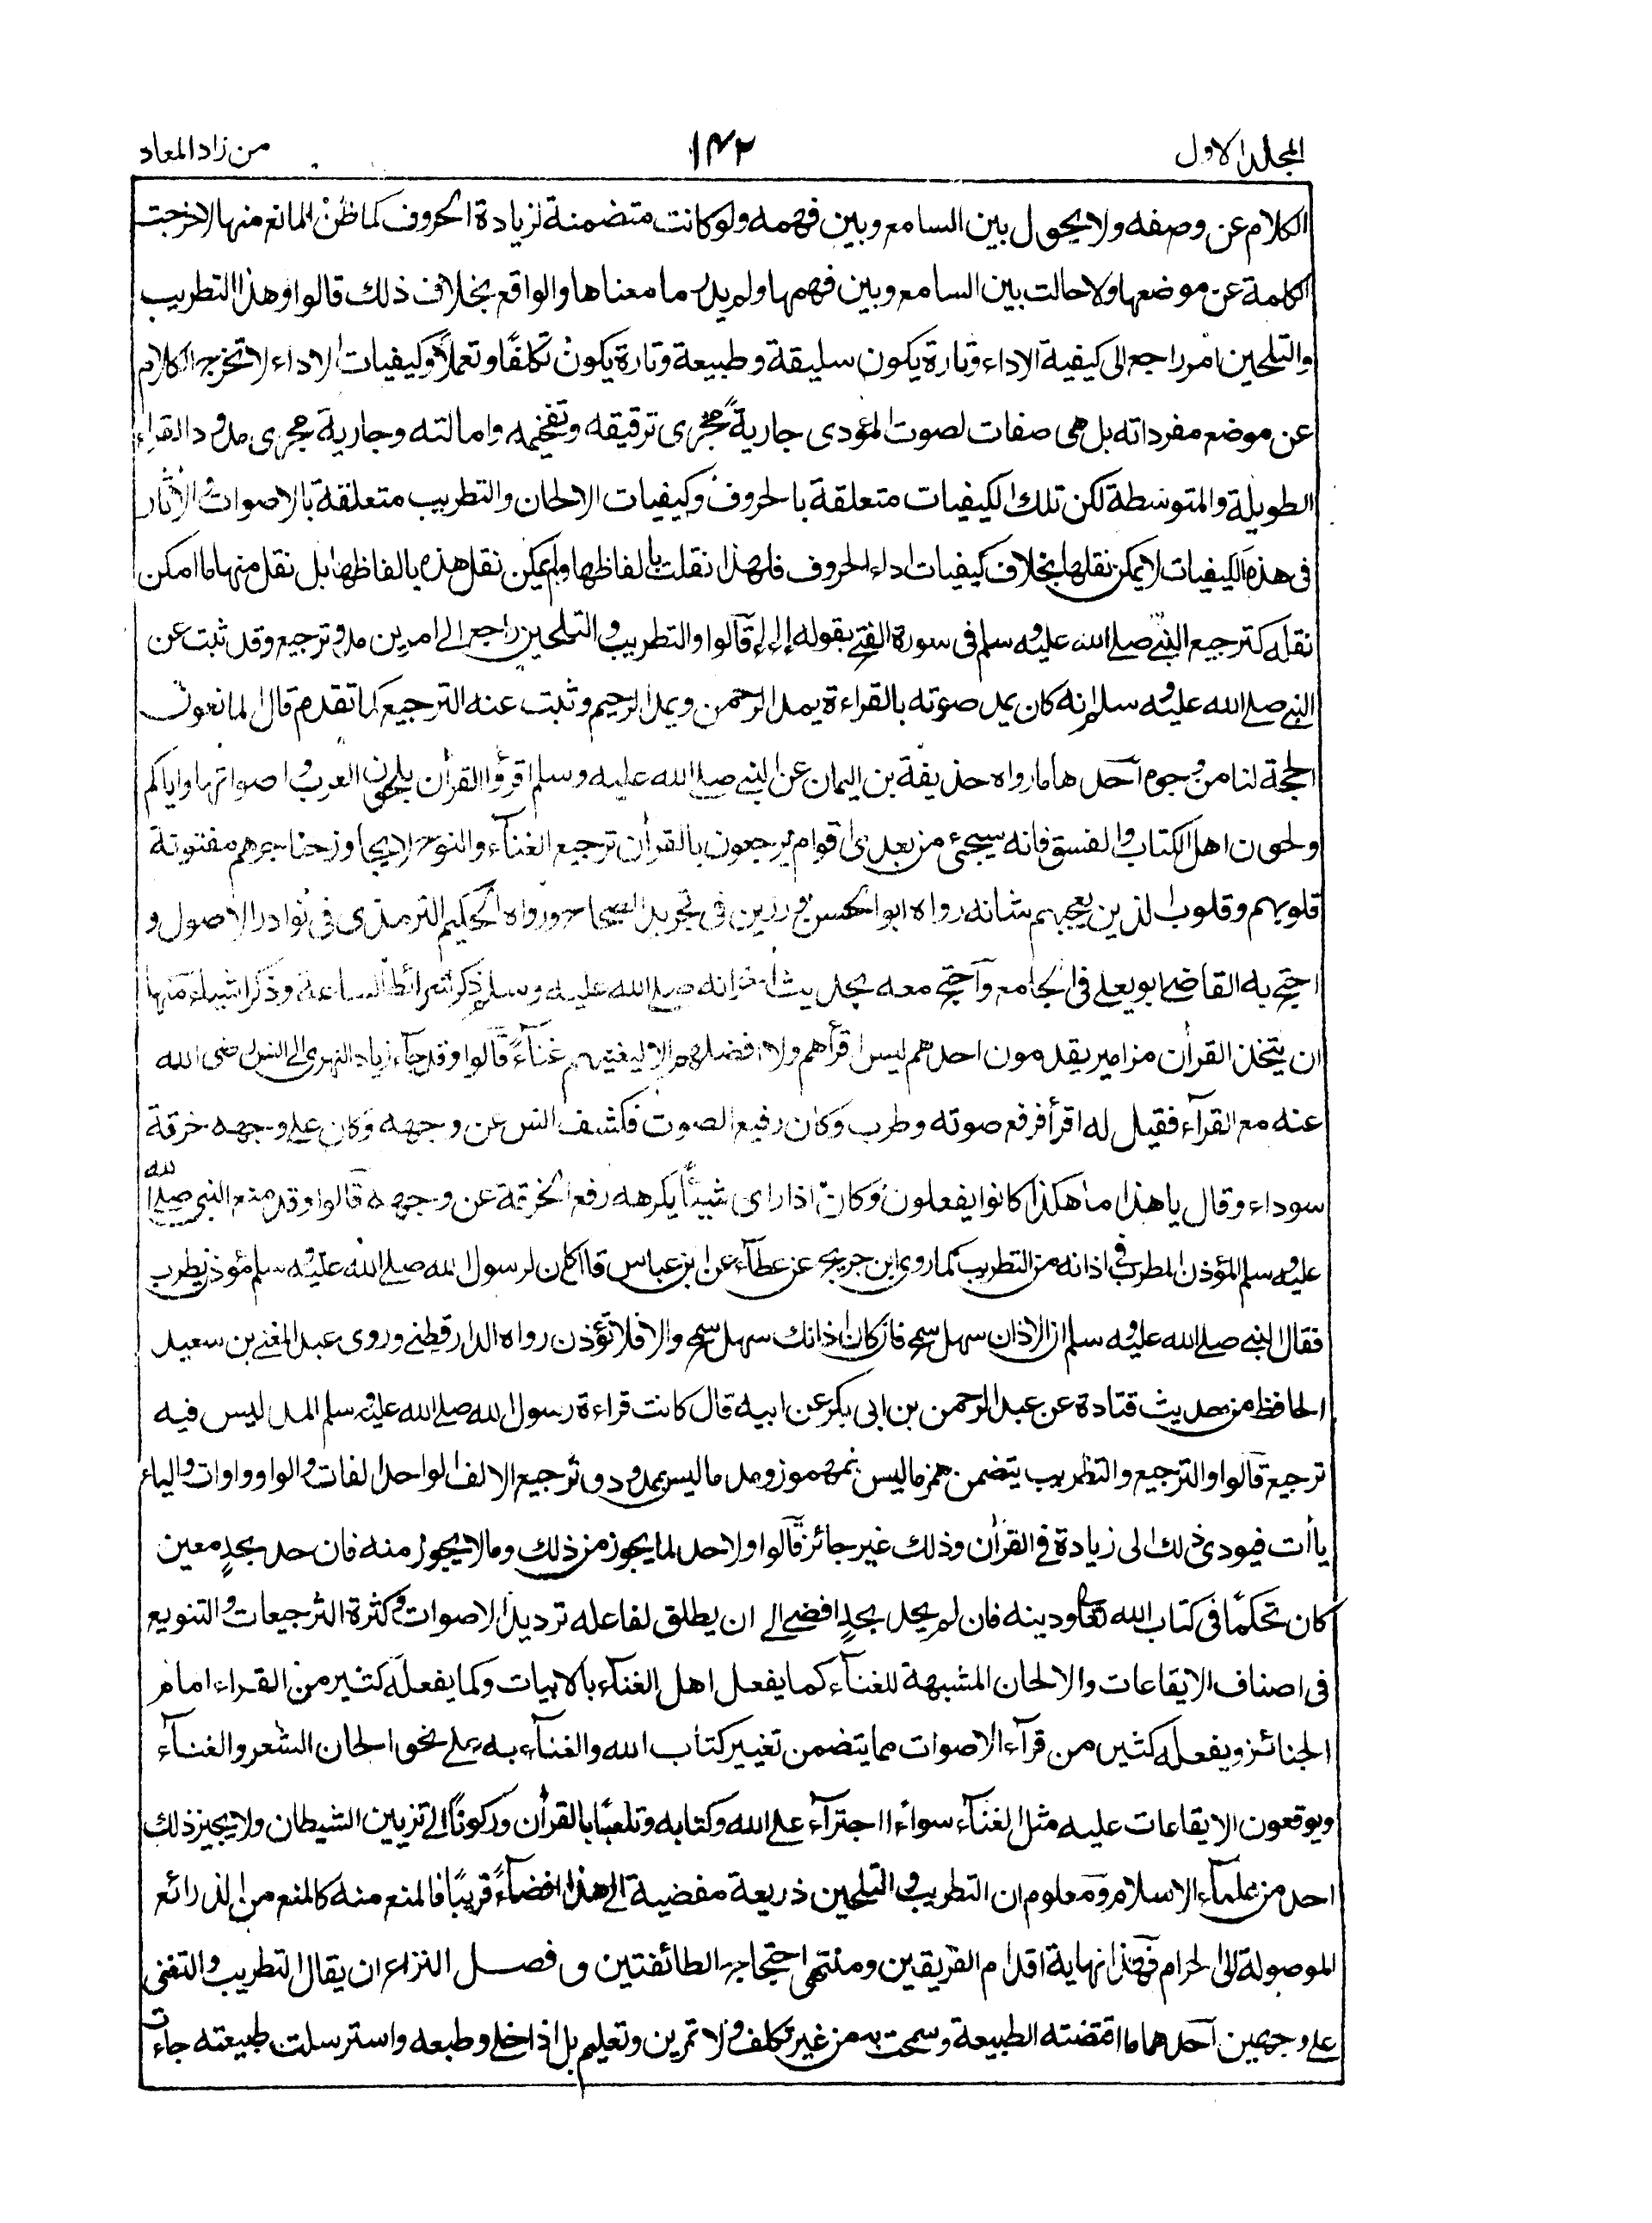 المجلد الاول
١٤٢
من زاد المعاد
الكلام عن وصفه ولا يحول بين السامع وبين فهمه ولو كانت متضمنة لزيادة الحروف كما ظن المانع منها لاخرجت
الكلمة عن موضعها ولا حالت بين السامع وبين فهمها ولم يدر ما معناها والواقع بخلاف ذلك قالوا وهذا التطريب
والتلحين امر راجع الى كيفية الاداء وتارة يكون سليقة وطبيعة وتارة يكون تكلفًا وتعملًا وكيفيات الاداء لا تخرج الكلام
عن موضع مفرداته بل هى صفات لصوت المؤدى جارية مجرى ترقيقه وتفخيمه وامالته وجارية مجرى مدود القراء
الطويلة والمتوسطة لكن تلك الكيفيات متعلقة بالحروف وكيفيات الالحان والتطريب متعلقة بالاصوات والآثار
فى هذه الكيفيات لا يمكن نقلها بخلاف كيفيات اداء الحروف فلهذا نقلت بالفاظها ولم يمكن نقل هذه بالفاظها بل نقل منها ما امكن
نقله كترجيع النبي صلے الله عليه وسلم فى سورة الفتح بقوله إ إ إ قالوا والتطريب والتلحين راجع الے امرين مد وترجيع وقد ثبت عن
النبي صلے الله عليه وسلم انه كان يمد صوته بالقراءة يمد الرحمن ويمد الرحيم وثبت عنه الترجيع كما تقدم قال المانعون
الحجة لنا من وجوه احدها ما رواه حذيفة بن اليمان عن النبي صلے الله عليه وسلم اقرؤا القرأن بلحون العرب واصواتها واياكم
ولحون اهل الكتاب والفسق فانه سيجئ من بعدى اقوام يرجعون بالقرأن ترجيع الغنآء والنوح لا يجاوز حناجرهم مفتونة
قلوبهم وقلوب الذين يعجبهم شانه رواه ابوالحسن رزين فى تجريد الصحاح ورواه الحكيم الترمذى فى نوادر الاصول و
احتج به القاضے ابو يعلے فى الجامع وآحتج معه بحديث اخر انه صلے الله عليه وسلم ذكر شرائط الساعة وذكر اشياء منها
ان يتخذ القرأن مزامير يقدمون احدهم ليس اقرأهم ولا افضلهم الا ليغنيهم غنآءً قالوا وقد جآء زياد النهرى الى انس رضى الله
عنه مع القرآء فقيل له اقرأ فرفع صوته وطرب وكان رفيع الصوت فكشف انس عن وجهه وكان علے وجهه خرقة
سوداء وقال يا هذا ما هكذا كانوا يفعلون وكان اذا راى شيئًا يكرهه رفع الخرقة عن وجهه قالوا وقد منع النبي صلے الله
عليه وسلم المؤذن المطرب فى اذانه من التطريب كما روى ابن جريج عن عطآء عن ابن عباس قال كان لرسول الله صلے الله عليه وسلم مؤذن يطرب
فقال النبي صلے الله عليه وسلم ان الاذان سهل سمح فان كان اذانك سهل سمح والا فلا تؤذن رواه الدارقطنے وروى عبد الغنے بن سعيد
الحافظ من حديث قتادة عن عبد الرحمن بن ابى بكر عن ابيه قال كانت قراءة رسول الله صلے الله عليه وسلم المد ليس فيه
ترجيع قالوا والترجيع والتطريب يتضمن همز ما ليس بمهموز ومد ما ليس بممدود وترجيع الالف الواحد الفات والواو واوات والياء
ياأت فيودى ذلك الى زيادة فى القرأن وذلك غير جائز قالوا ولا حد لما يجوز من ذلك وما لا يجوز منه فان حد بحدٍ معين
كان تحكمًا فى كتاب الله تعالى ودينه فان لم يحد بحدٍ افضے الے ان يطلق لفاعله ترديد الاصوات وكثرة الترجيعات والتنويع
فى اصناف الايقاعات والالحان المشبهة للغنآء كما يفعل اهل الغنآء بالابيات وكما يفعله كثير من القراء امام
الجنائز ويفعله كثير من قرآء الاصوات مما يتضمن تغيير كتاب الله والغنآء به علے نحو الحان الشعر والغنآء
ويوقعون الايقاعات عليه مثل الغنآء سواءً اجترآء علے الله وكتابه وتلعبًا بالقرأن وركونًا الے تزيين الشيطان ولا يجيز ذلك
احد من علمآء الاسلام ومعلوم ان التطريب والتلحين ذريعة مفضية الے هذا افضآءً قريبًا فالمنع منه كالمنع من الذرائع
الموصولة الى الحرام فهذا نهاية اقدام الفريقين ومنتهى احتجاج الطائفتين وفصل النزاع ان يقال التطريب والتغنى
علے وجهين احدهما ما اقتضته الطبيعة وسمحت به من غير تكلف ولا تمرين وتعليم بل اذا خلے وطبعه واسترسلت طبيعته جاءت